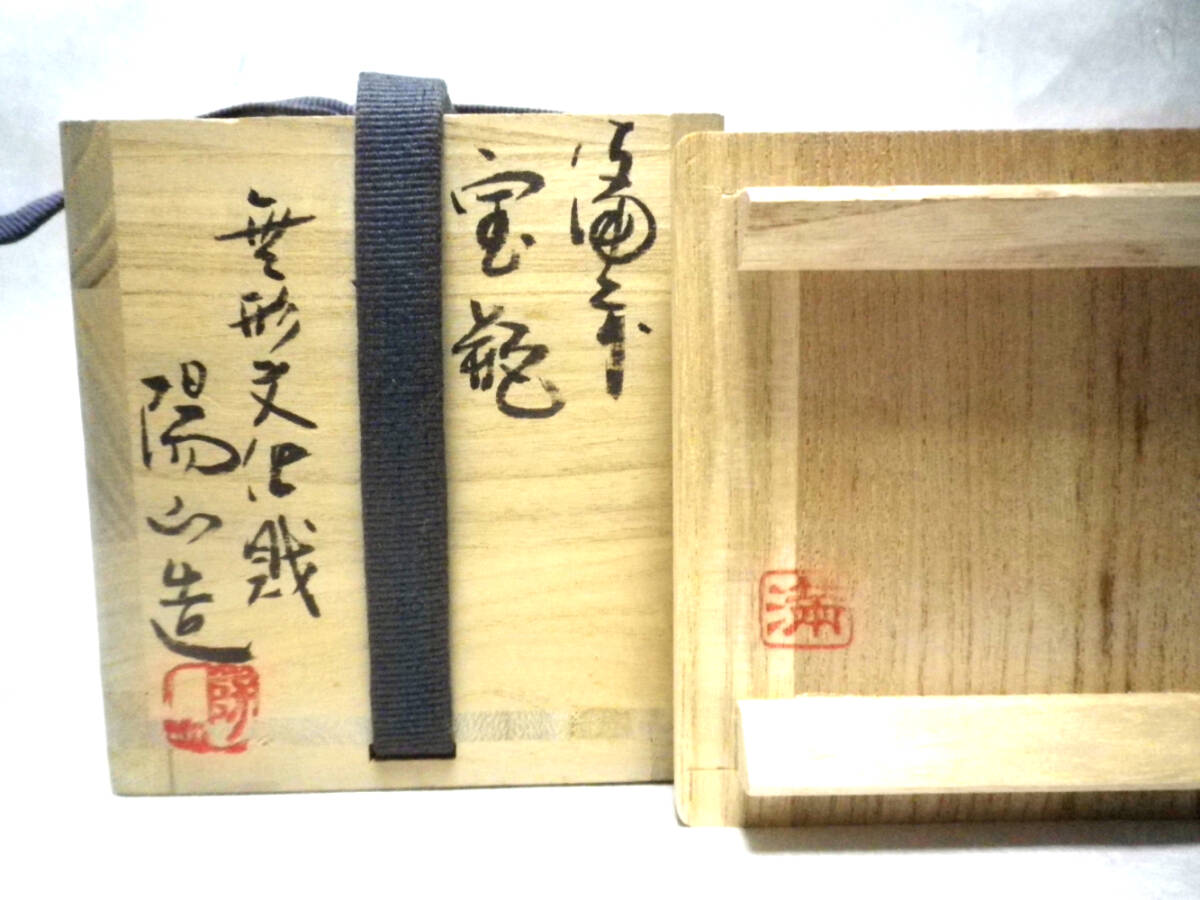 備前
宝瓶
無形文化財
陽山造
陽山
満